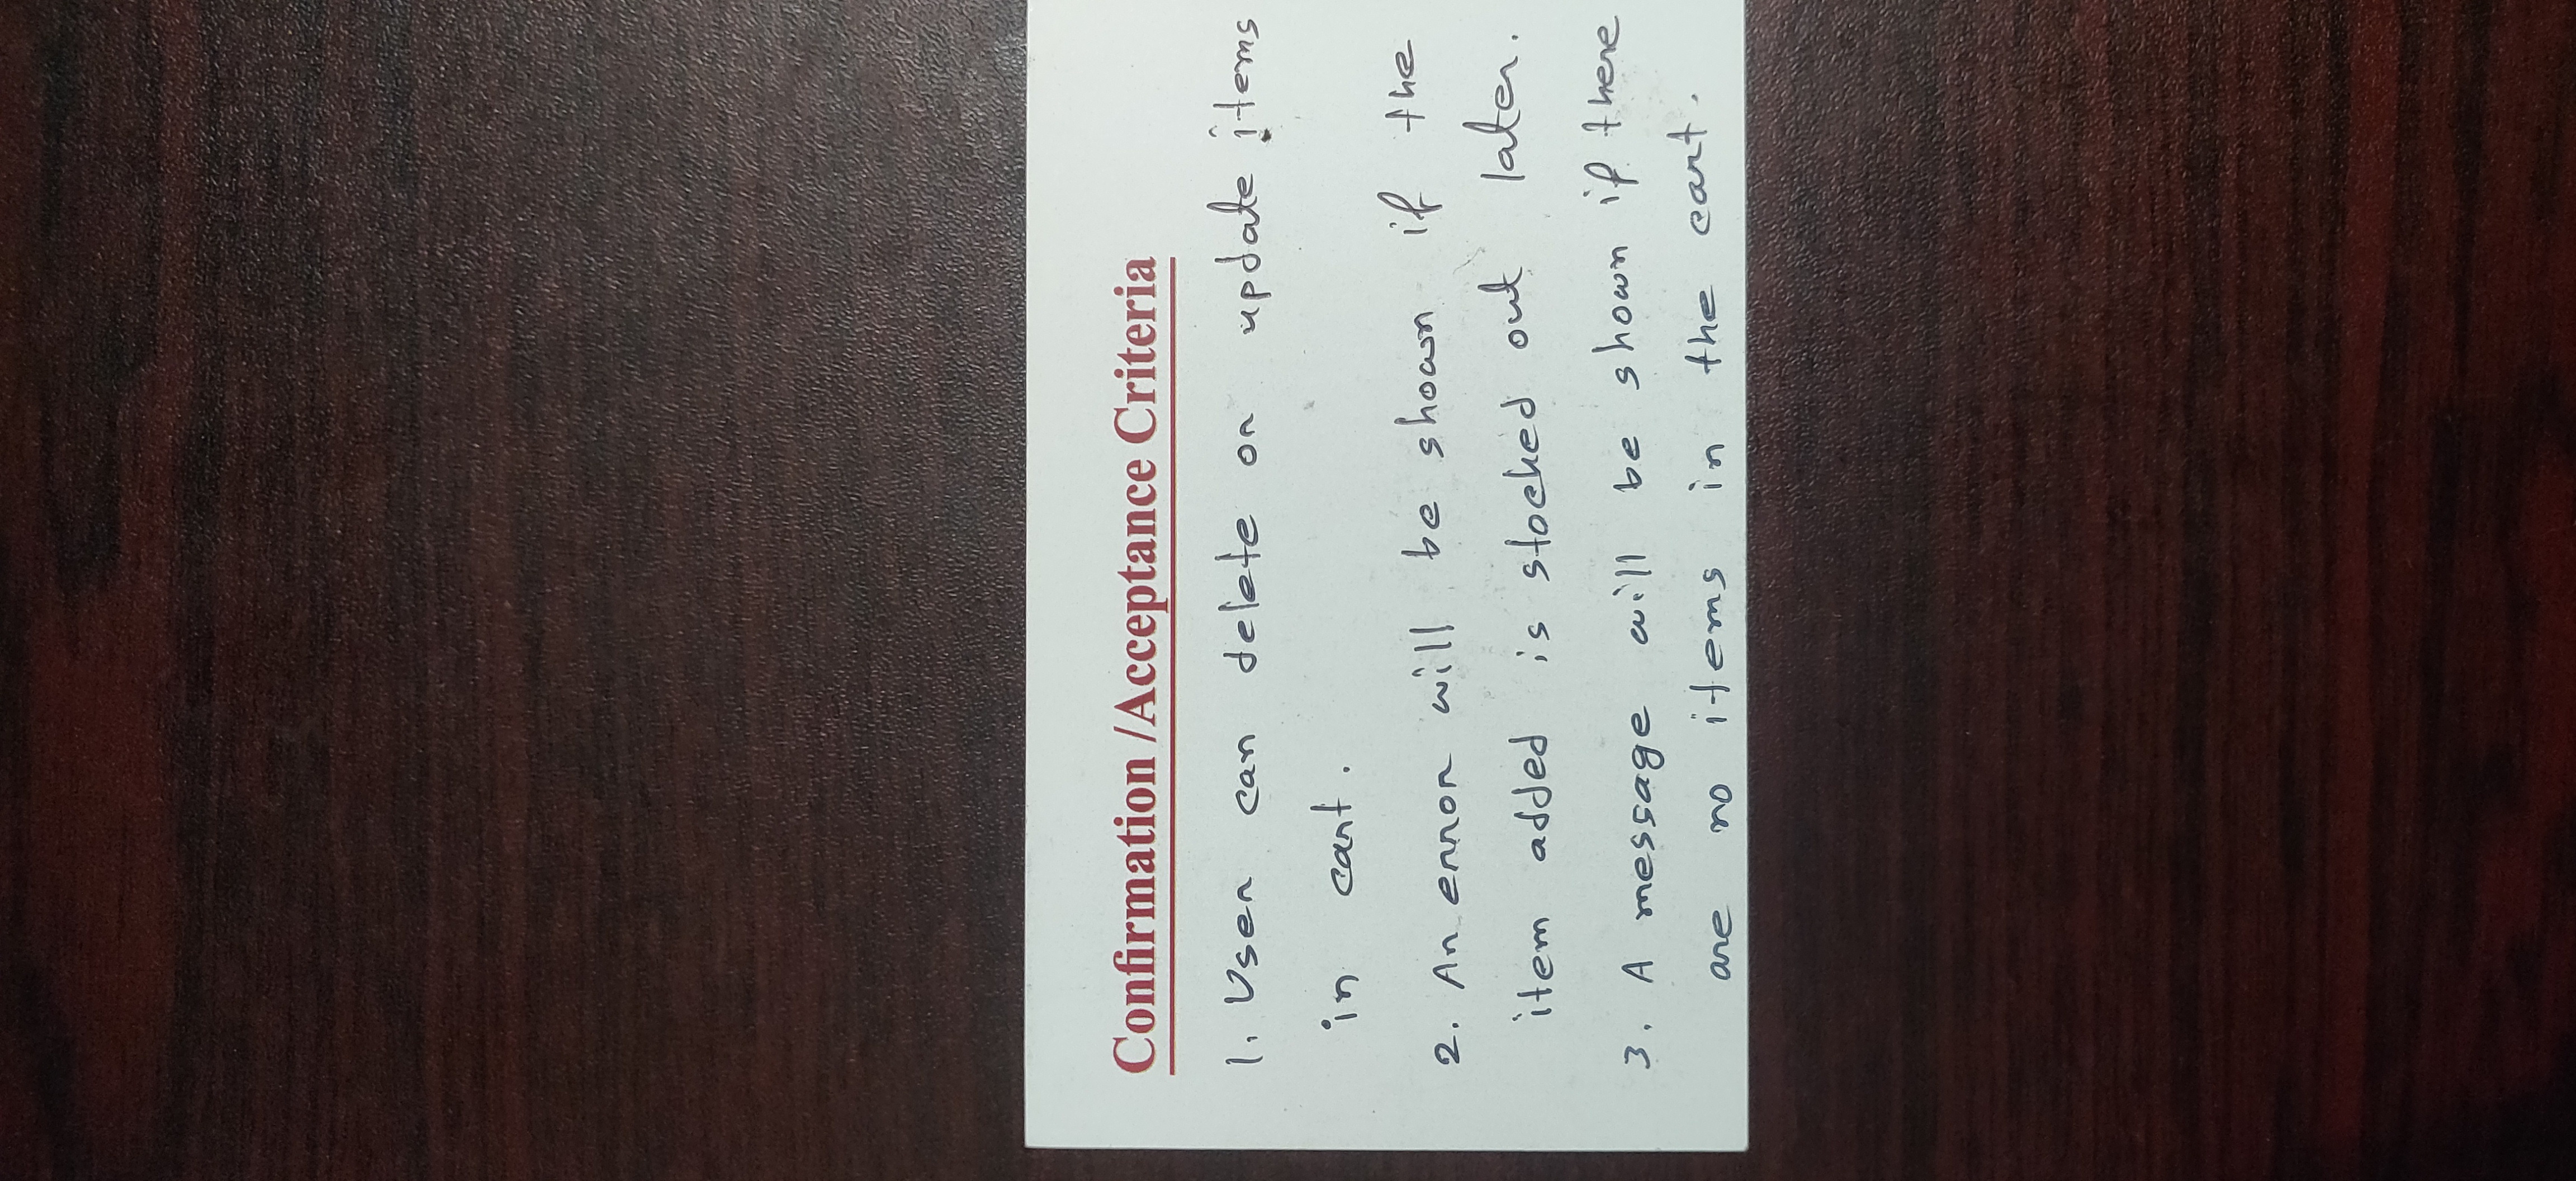 Confirmation /Acceptance Criteria
1. User can delete or update items
in cart.
2. An error will be shown if the
item added is stocked out later.
3. A message will be shown if there
are no items in the cart.